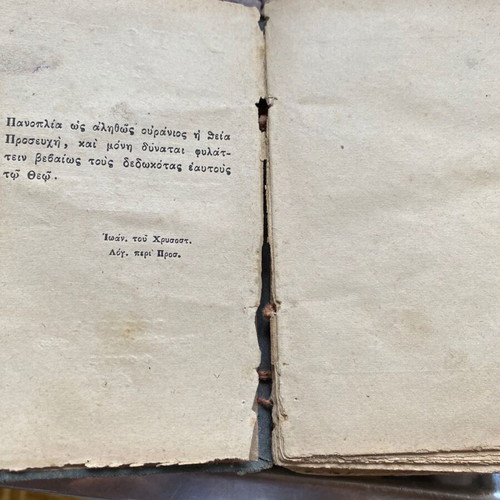 Πανοπλία ὡς ἀληθῶς οὐράνιος ἡ θεία
Προσευχὴ, καὶ μόνη δύναται φυλάτ-
τειν βεβαίως τοὺς δεδωκότας ἑαυτοὺς
τῷ Θεῷ.
Ἰωάν. τοῦ Χρυσοστ.
Λόγ. περὶ Προσ.